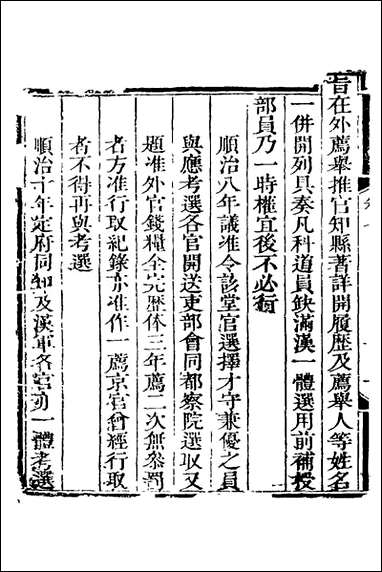 旨在外薦舉推官知縣著詳開履歷及薦舉人等姓名
一併開列具奏凡科道員缺滿漢一體選用前補授
部員乃一時權宜後不必行
順治八年議准令該堂官選擇才守兼優之員
與應考選各官開送吏部會同都察院選取又
題准外官錢糧全完歷俸三年薦二次無參罰
者方准行取紀錄亦准作一薦京官曾經行取
者不得再與考選
順治十年定府同知及漢軍各官俱一體考選